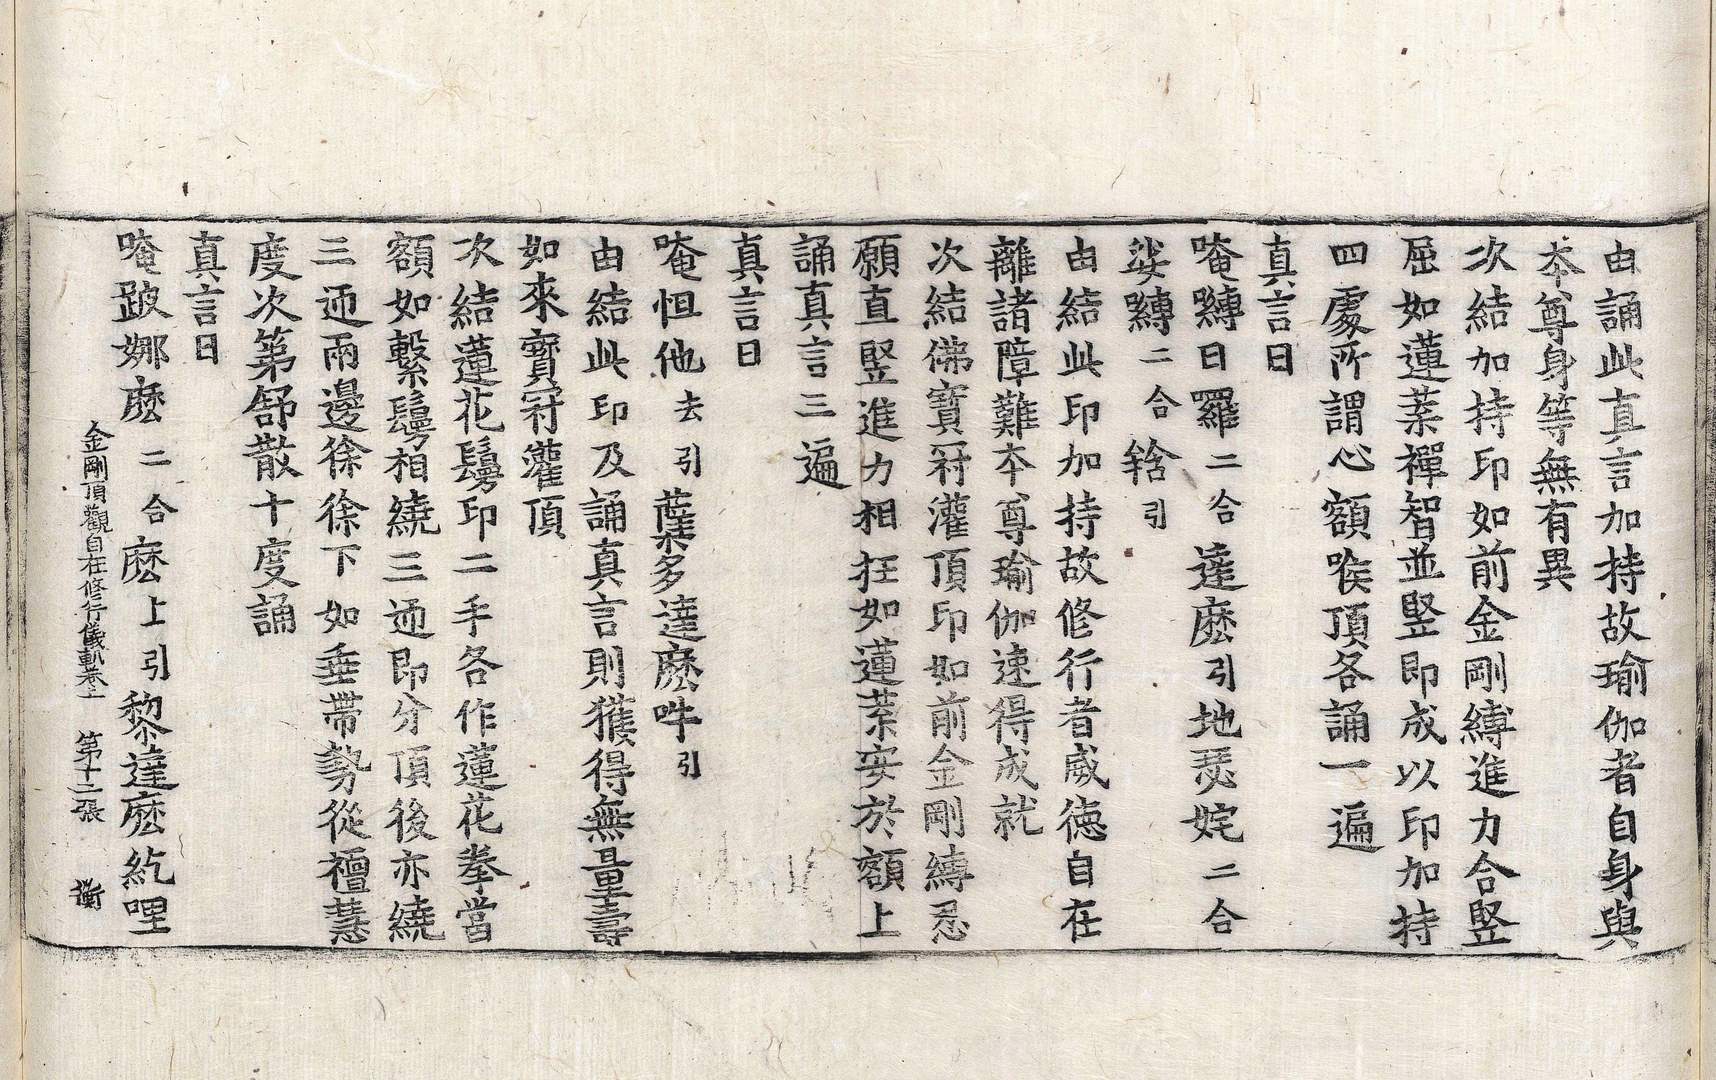 由誦此真言加持故瑜伽者自身與
本尊身等無有異
次結加持印如前金剛縛進力合竪
屈如蓮葉禪智並竪即成以印加持
四處所謂心額喉頂各誦一遍
真言曰
唵嚩日羅二合達麽引地瑟姹二合
娑嚩二合𤚥引
由結此印加持故修行者威德自在
離諸障難本尊瑜伽速得成就
次結佛寶冠灌頂印如前金剛縛忍
願直竪進力相拄如蓮葉安於額上
誦真言三遍
真言曰
唵怛他去引蘖多達麽吽引
由結此印及誦真言則獲得無量壽
如來寶冠灌頂
次結蓮花鬘印二手各作蓮花拳當
額如繫鬘相繞三迊即分頂後亦繞
三迊兩邊徐徐下如垂帶勢從檀慧
度次第舒散十度誦
真言曰
唵跛娜麽二合麽上引黎達麽紇哩
金剛頂觀自在修行儀軌卷上　第十二張　衡